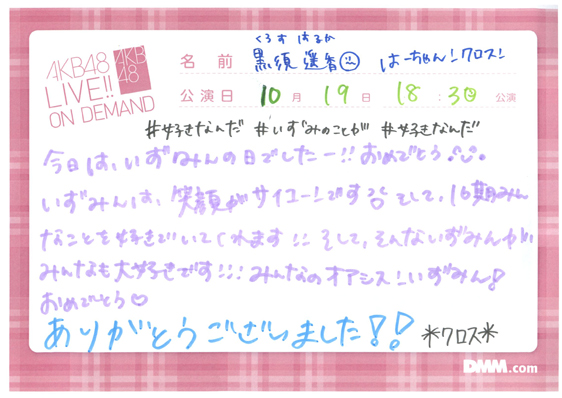 AKB48
LIVE!!
ON DEMAND
AKB
48
くろす はるか
名前 黒須 遥香 はーちゃん!クロス!
公演日 10月 19日 18:30 公演
#好きなんだ #いずみのことが #好きなんだ
今日は、いずみんの日でしたー!!おめでとう
いずみんは、笑顔がサイコーです そして、16期みん
なことを好きでいてくれます!! そして、そんないずみんが、
みんなも大好きです!!! みんなのオアシス!いずみん!
おめでとう♡
ありがとうございました!! *クロス*
DMM.com